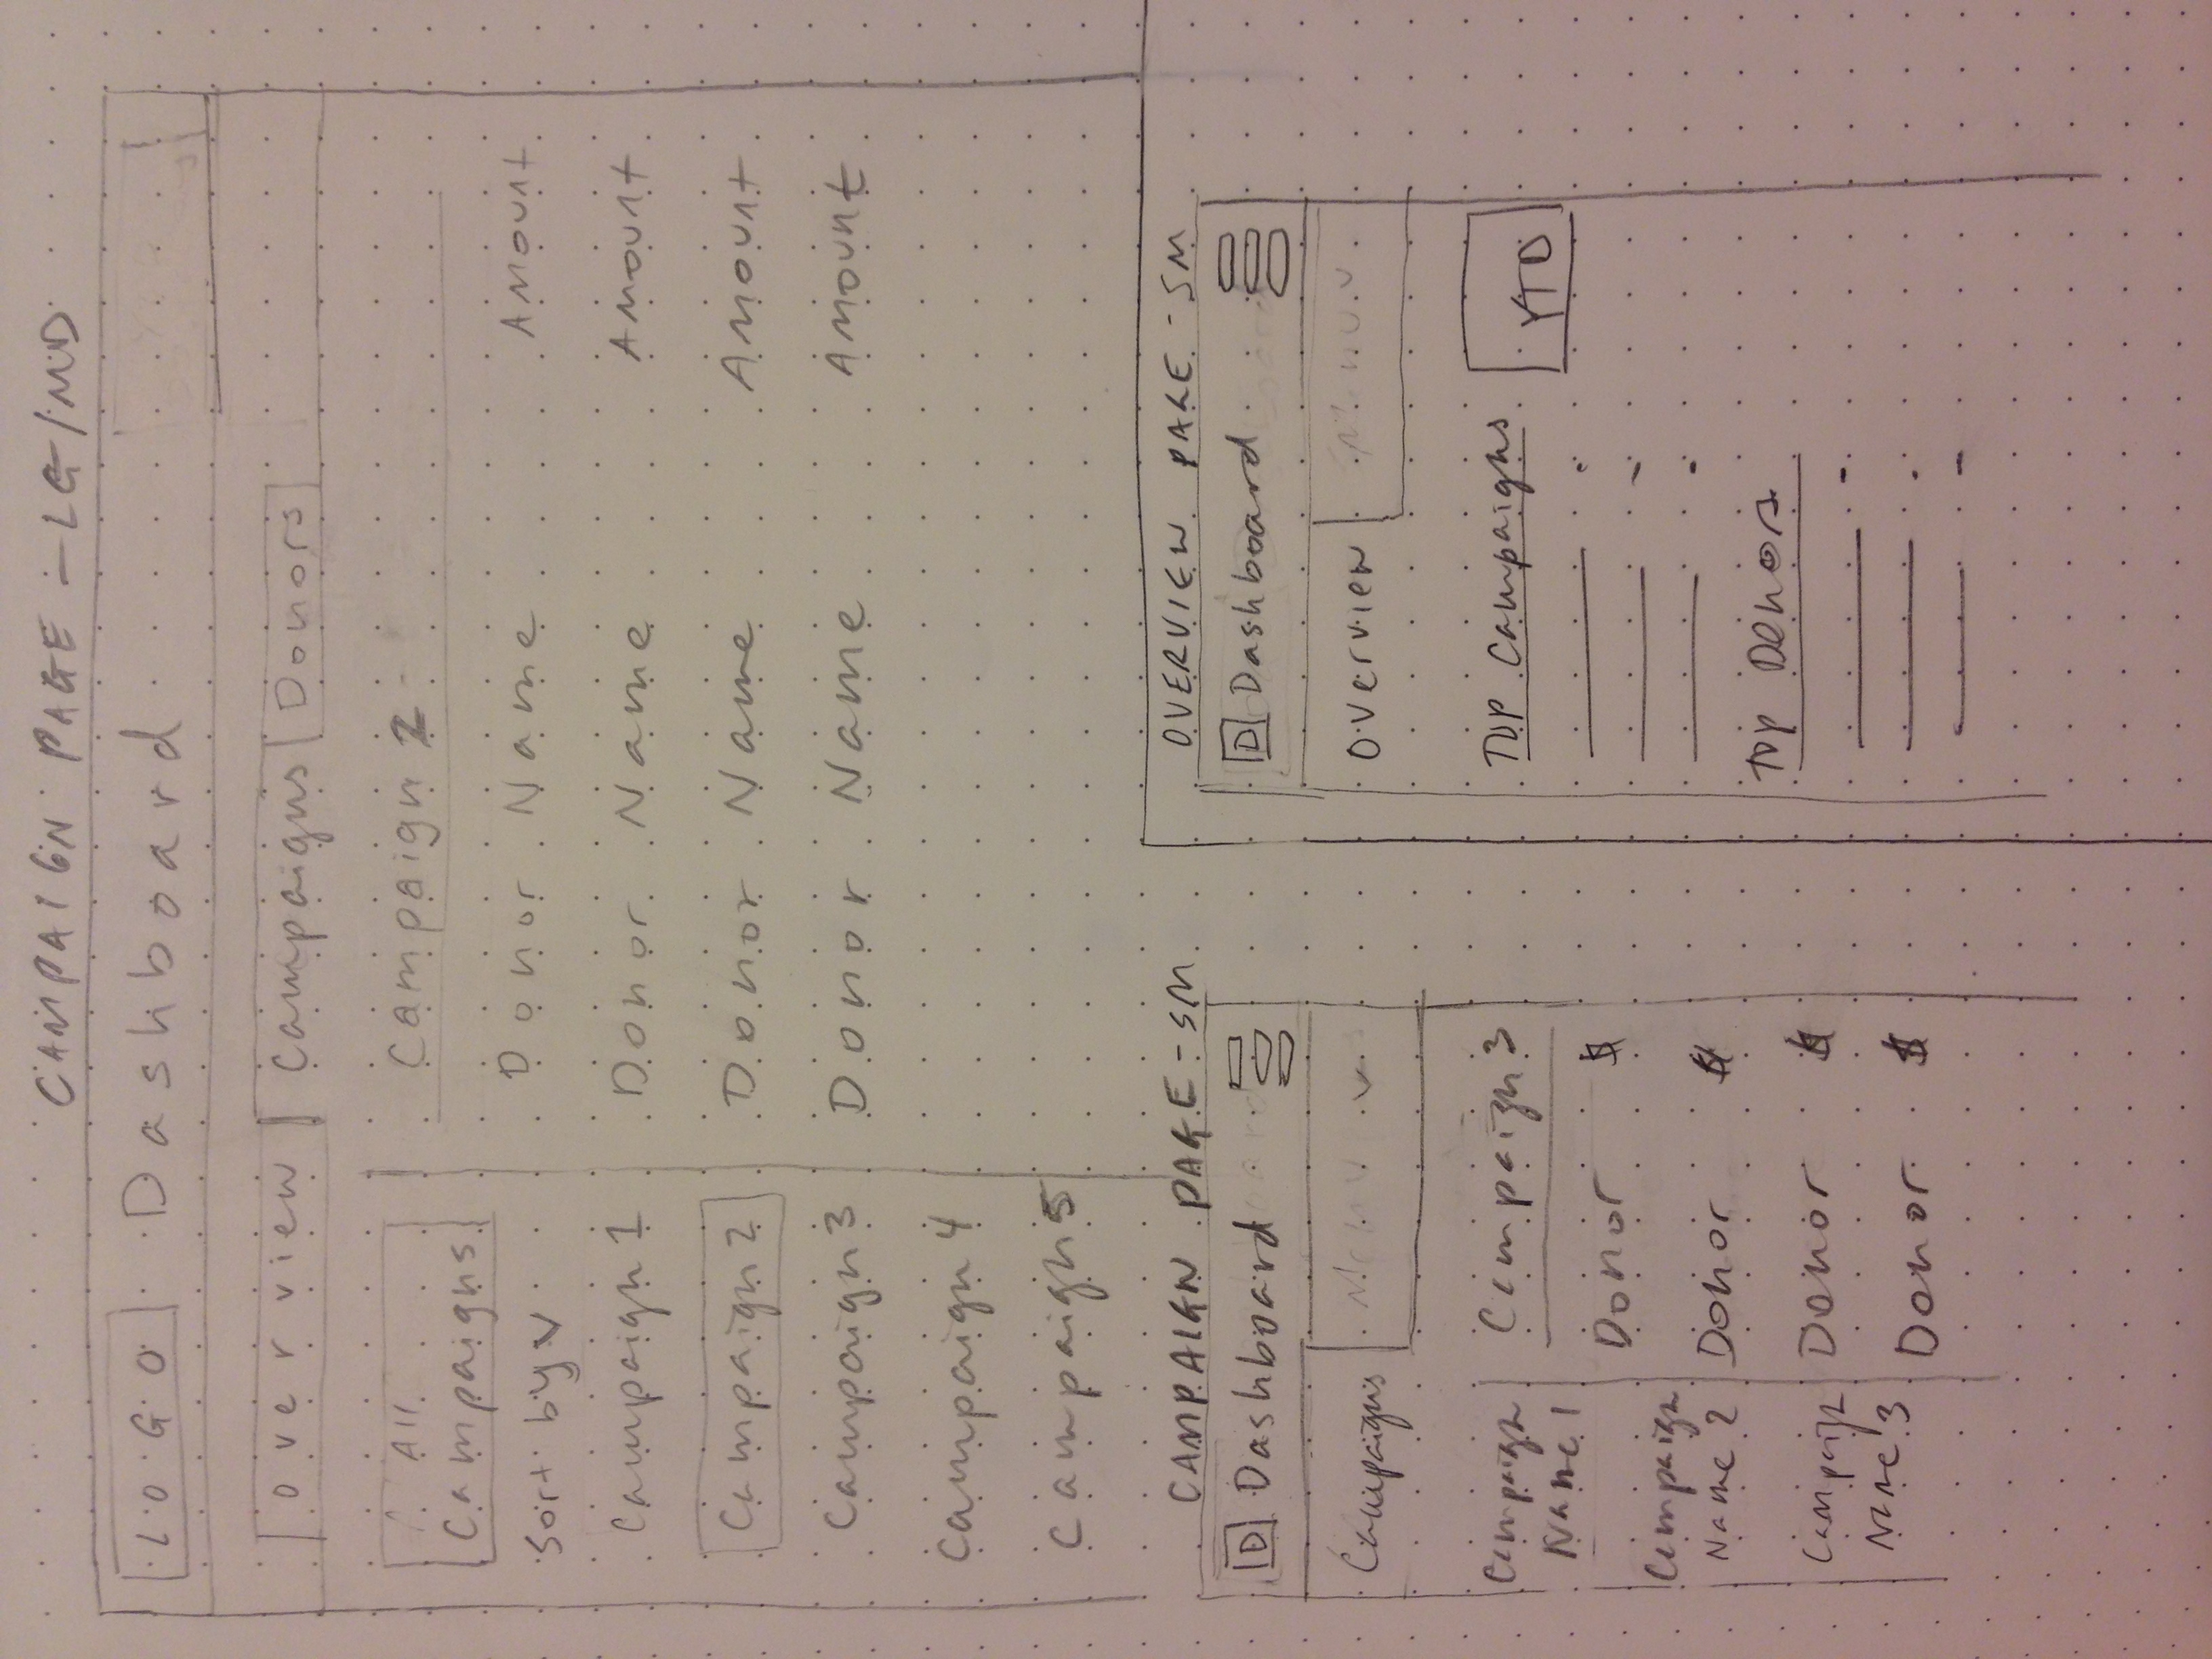 CAMPAIGN PAGE - LG/MD
LOGO Dashboard
overview Campaigns Donors
All
Campaigns
Campaign 2
Sort by v
Donor Name Amount
Campaign 1
Donor Name Amount
Campaign 2
Donor Name Amount
Campaign 3
Donor Name Amount
Campaign 4
Campaign 5
CAMPAIGN PAGE - SM
D Dashboard
Campaigns Menu v
Campaign
Name 1
Campaign
Name 2
Campaign
Name 3
Campaign 3
Donor $
Donor $
Donor $
Donor $
OVERVIEW PAGE - SM
D Dashboard
Overview Menu v
Top Campaigns
YTD
Top Donors